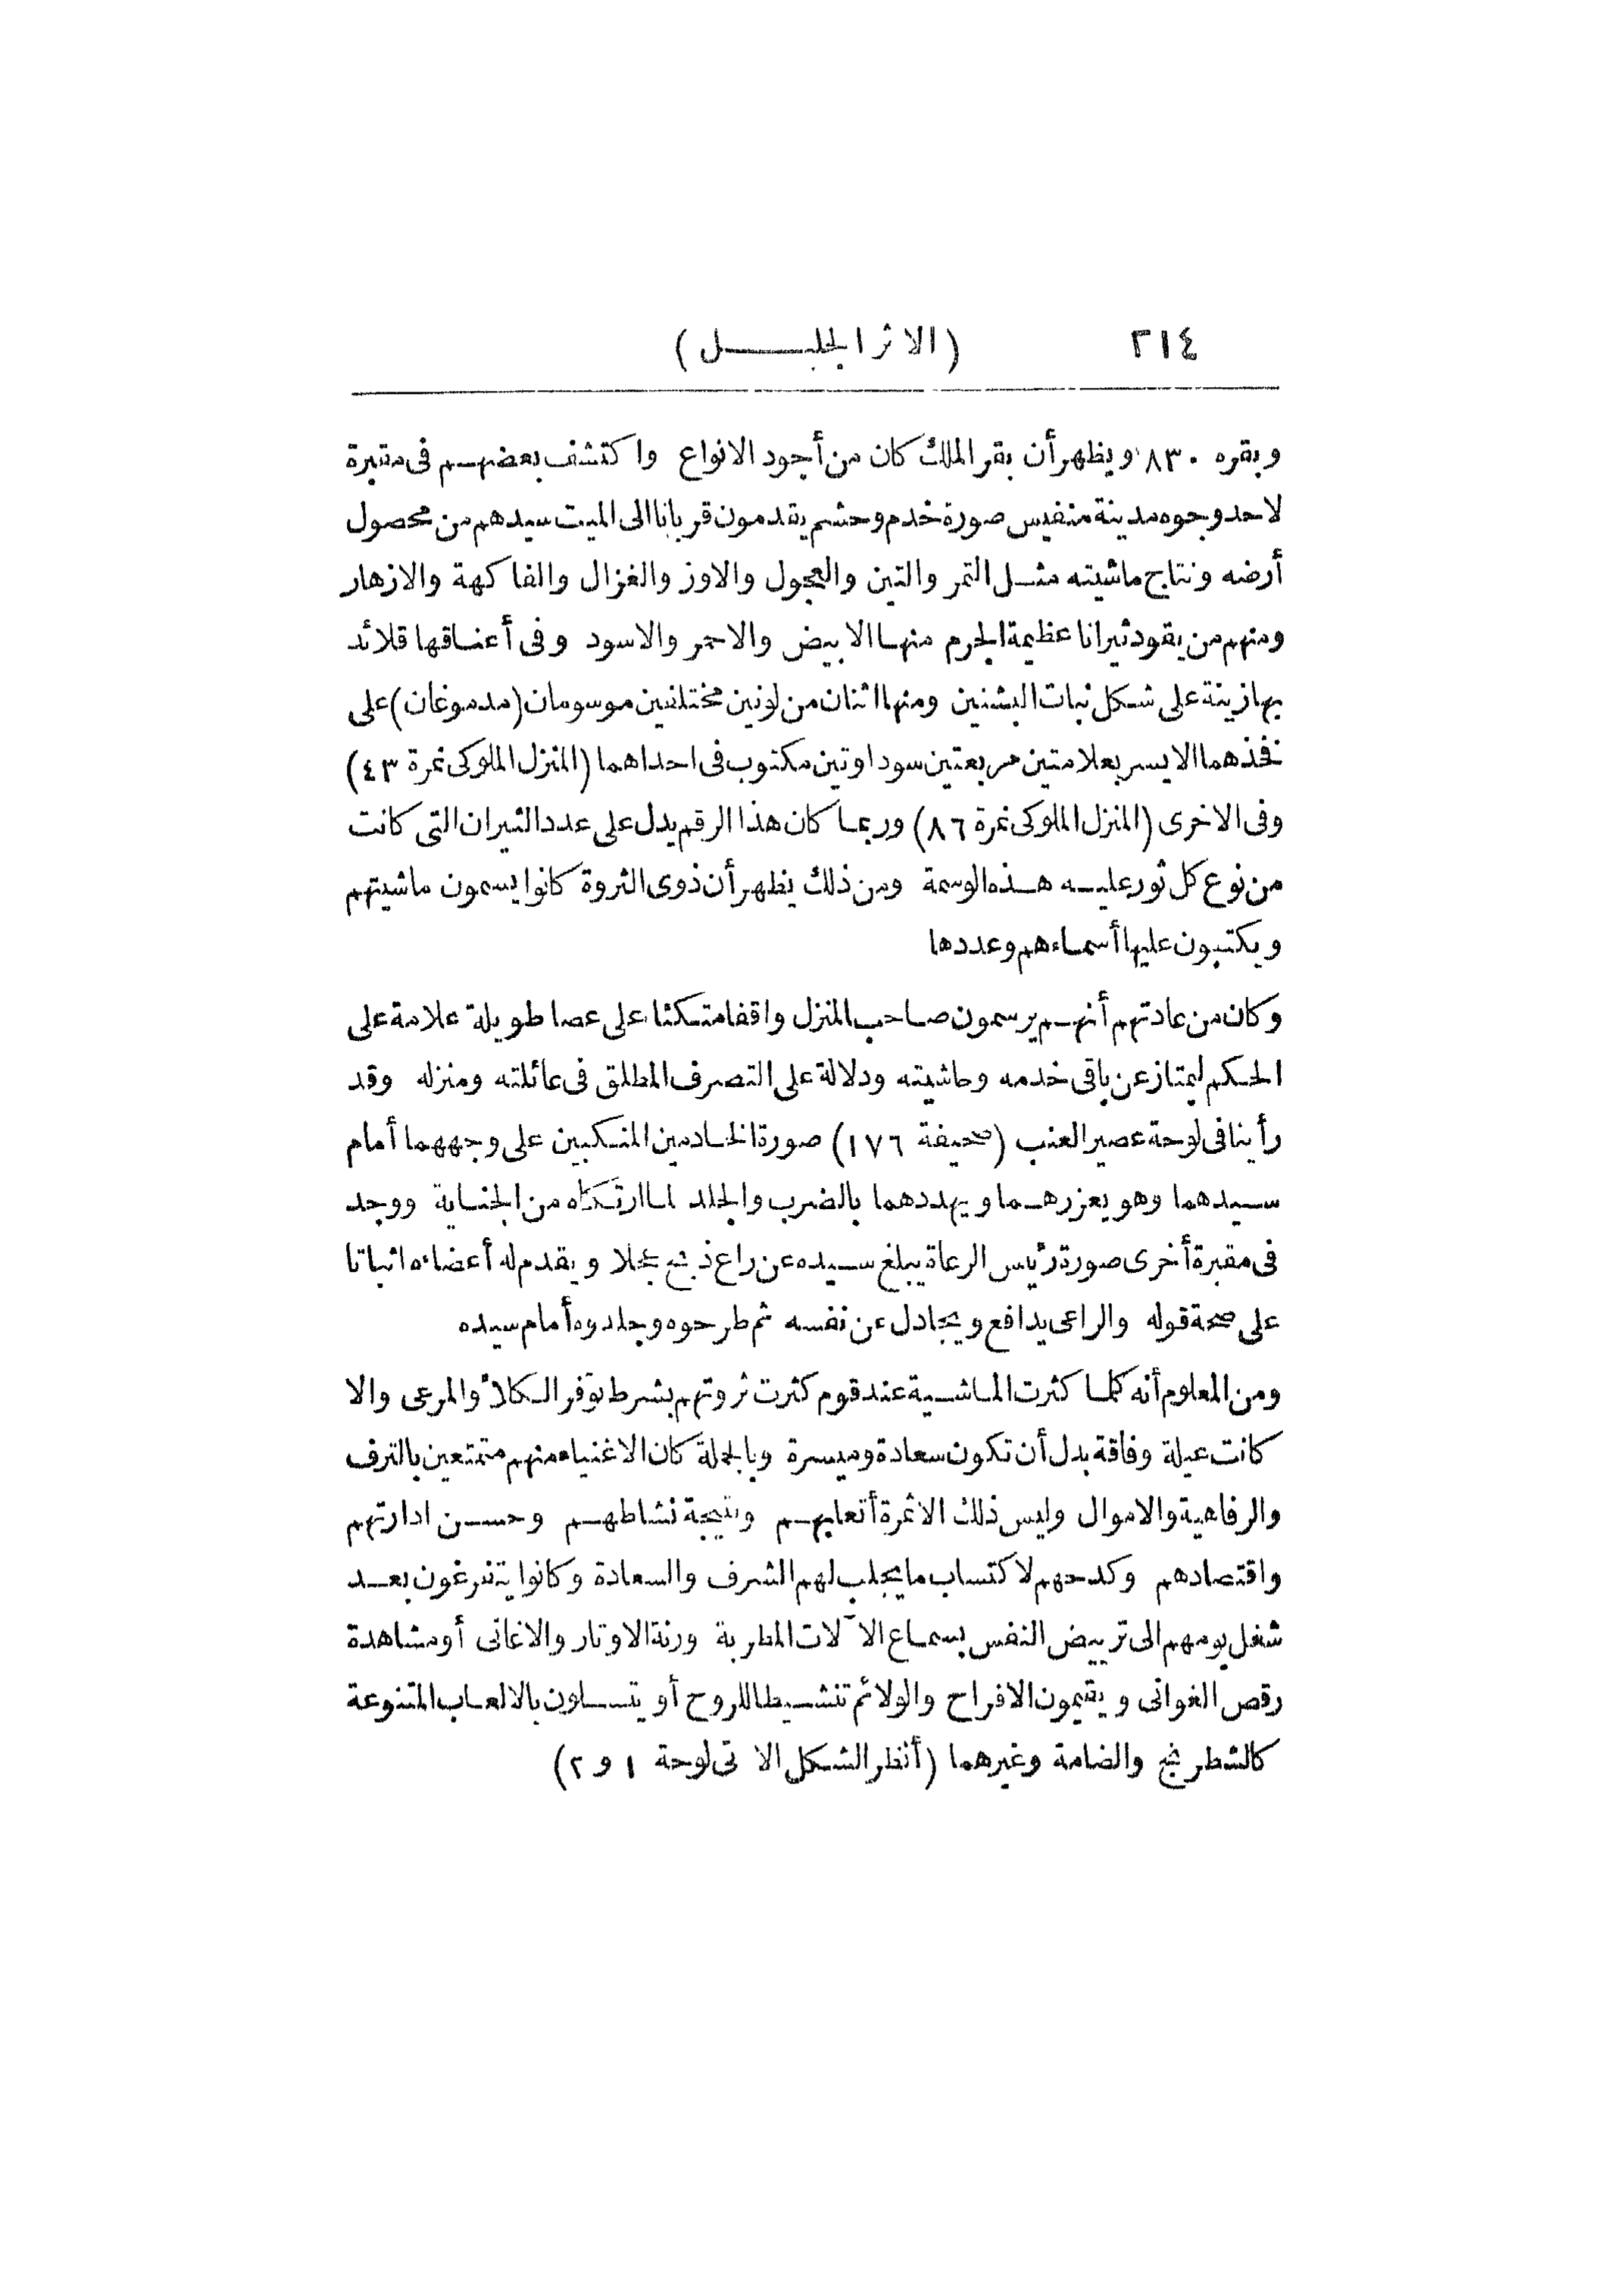 ٢١٤ (الاثر الجليل)
وبقره ٨٣٠ ويظهر أن بقر الملك كان من أجود الانواع واكتشف بعضهم فى مقبرة
لاحد وجوه مدينة منفيس صورة خدم وحشم يقدمون قربانا الى الميت سيدهم من محصول
أرضه ونتاج ماشيته مثل التمر والتين والعجول والاوز والغزال والفاكهة والازهار
ومنهم من يقود ثيرانا عظيمة الجرم منها الابيض والاحمر والاسود وفى أعناقها قلائد
بها زينة على شكل نبات البشنين ومنها اثنان من لونين مختلفين موسومان (مدموغان) على
فخذهما الايسر بعلامتين مربعتين سوداوتين مكتوب فى احداهما (المنزل الملوكى نمرة ٤٣)
وفى الاخرى (المنزل الملوكى نمرة ٨٦) وربما كان هذا الرقم يدل على عدد الثيران التى كانت
من نوع كل ثور عليه هذه الوسمة ومن ذلك يظهر أن ذوى الثروة كانوا يسمون ماشيتهم
ويكتبون عليها أسماءهم وعددها
وكان من عادتهم أنهم يرسمون صاحب المنزل واقفا متكئا على عصا طويلة علامة على
الحكم ليمتاز عن باقى خدمه وحاشيته ودلالة على التصرف المطلق فى عائلته ومنزله وقد
رأينا فى لوحة عصير العنب (صحيفة ١٧٦) صورة الخادمين المنكبين على وجههما أمام
سيدهما وهو يعزرهما ويهددهما بالضرب والجلد لما ارتكباه من الجناية ووجد
فى مقبرة أخرى صورة رئيس الرعاة يبلغ سيده عن راع ذبح عجلا ويقدم له أعضاءه اثباتا
على صحة قوله والراعى يدافع ويجادل عن نفسه ثم طرحوه وجلدوه أمام سيده
ومن المعلوم أنه كلما كثرت الماشية عند قوم كثرت ثروتهم بشرط توفر الكلأ والمرعى والا
كانت عيلة وفاقة بدل أن تكون سعادة وميسرة وبالجملة كان الاغنياء منهم متمتعين بالترف
والرفاهية والاموال وليس ذلك الا ثمرة أتعابهم ونتيجة نشاطهم وحسن ادارتهم
واقتصادهم وكدحهم لاكتساب ما يجلب لهم الشرف والسعادة وكانوا يتفرغون بعد
شغل يومهم الى ترييض النفس بسماع الآلات المطربة ورنة الاوتار والاغانى أو مشاهدة
رقص الغوانى ويقيمون الافراح والولائم تنشيطا للروح أو يتسلون بالالعاب المتنوعة
كالشطرنج والضامة وغيرهما (أنظر الشكل الاتى لوحة ١ و ٢)